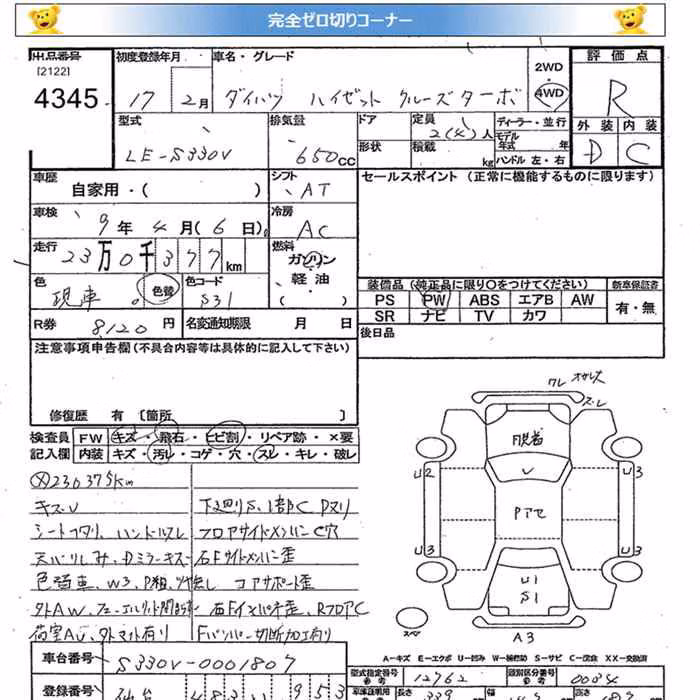 完全ゼロ切りコーナー
出品番号
[2122]
4345
初度登録年月
17 2月
車名・グレード
ダイハツ ハイゼット クルーズターボ
2WD
4WD
評価点
R
外装 内装
D C
型式
LE-S330V
排気量
650cc
ドア
形状
定員
2(4)人
積載
kg
ディーラー・並行
モデル年式 年
ハンドル 左・右
車歴
自家用・( )
シフト
AT
セールスポイント (正常に機能するものに限ります)
車検
9年4月(6日)
冷房
AC
走行
23万0千377km
燃料
ガソリン
軽油
( )
色
現車
色替
色コード
S31
装備品(純正品に限り○をつけてください)
新車保証書
PS PW ABS エアB AW
SR ナビ TV カワ
有・無
R券
8120円
名変通知期限 月 日
後日品
注意事項申告欄(不具合内容等は具体的に記入して下さい)
修復歴 有 [箇所 ]
検査員記入欄
FW キズ・飛石・ヒビ割・リペア跡・×要
内装 キズ・汚レ・コゲ・穴・スレ・キレ・破レ
230375Km
キズU
下廻りS、1部C Pヌリ
シートコタリ、ハンドルスレ
フロアサイドメンバーC穴
天バリしみ、Dミラーキズ
石Fサイドメンバー歪
色替車、W3、P粗、ツヤ無し
コアサポート歪
外AW、フューエルリッド開
石Fインパネ歪、RフロアC
荷室AU、外マット有り
Fバンパー切断加工有り
ワレ
ズレ
脱着
U
Pアセ
U1
S1
U2
U3
U3
U3
A3
スペア
A-キズ E-エクボ U-凹み W-補修跡 S-サビ C-腐食 XX-交換済
車台番号
S330V-0001807
型式指定番号
12762
類別区分番号
0034
登録番号
仙台 483 953
長さ
339